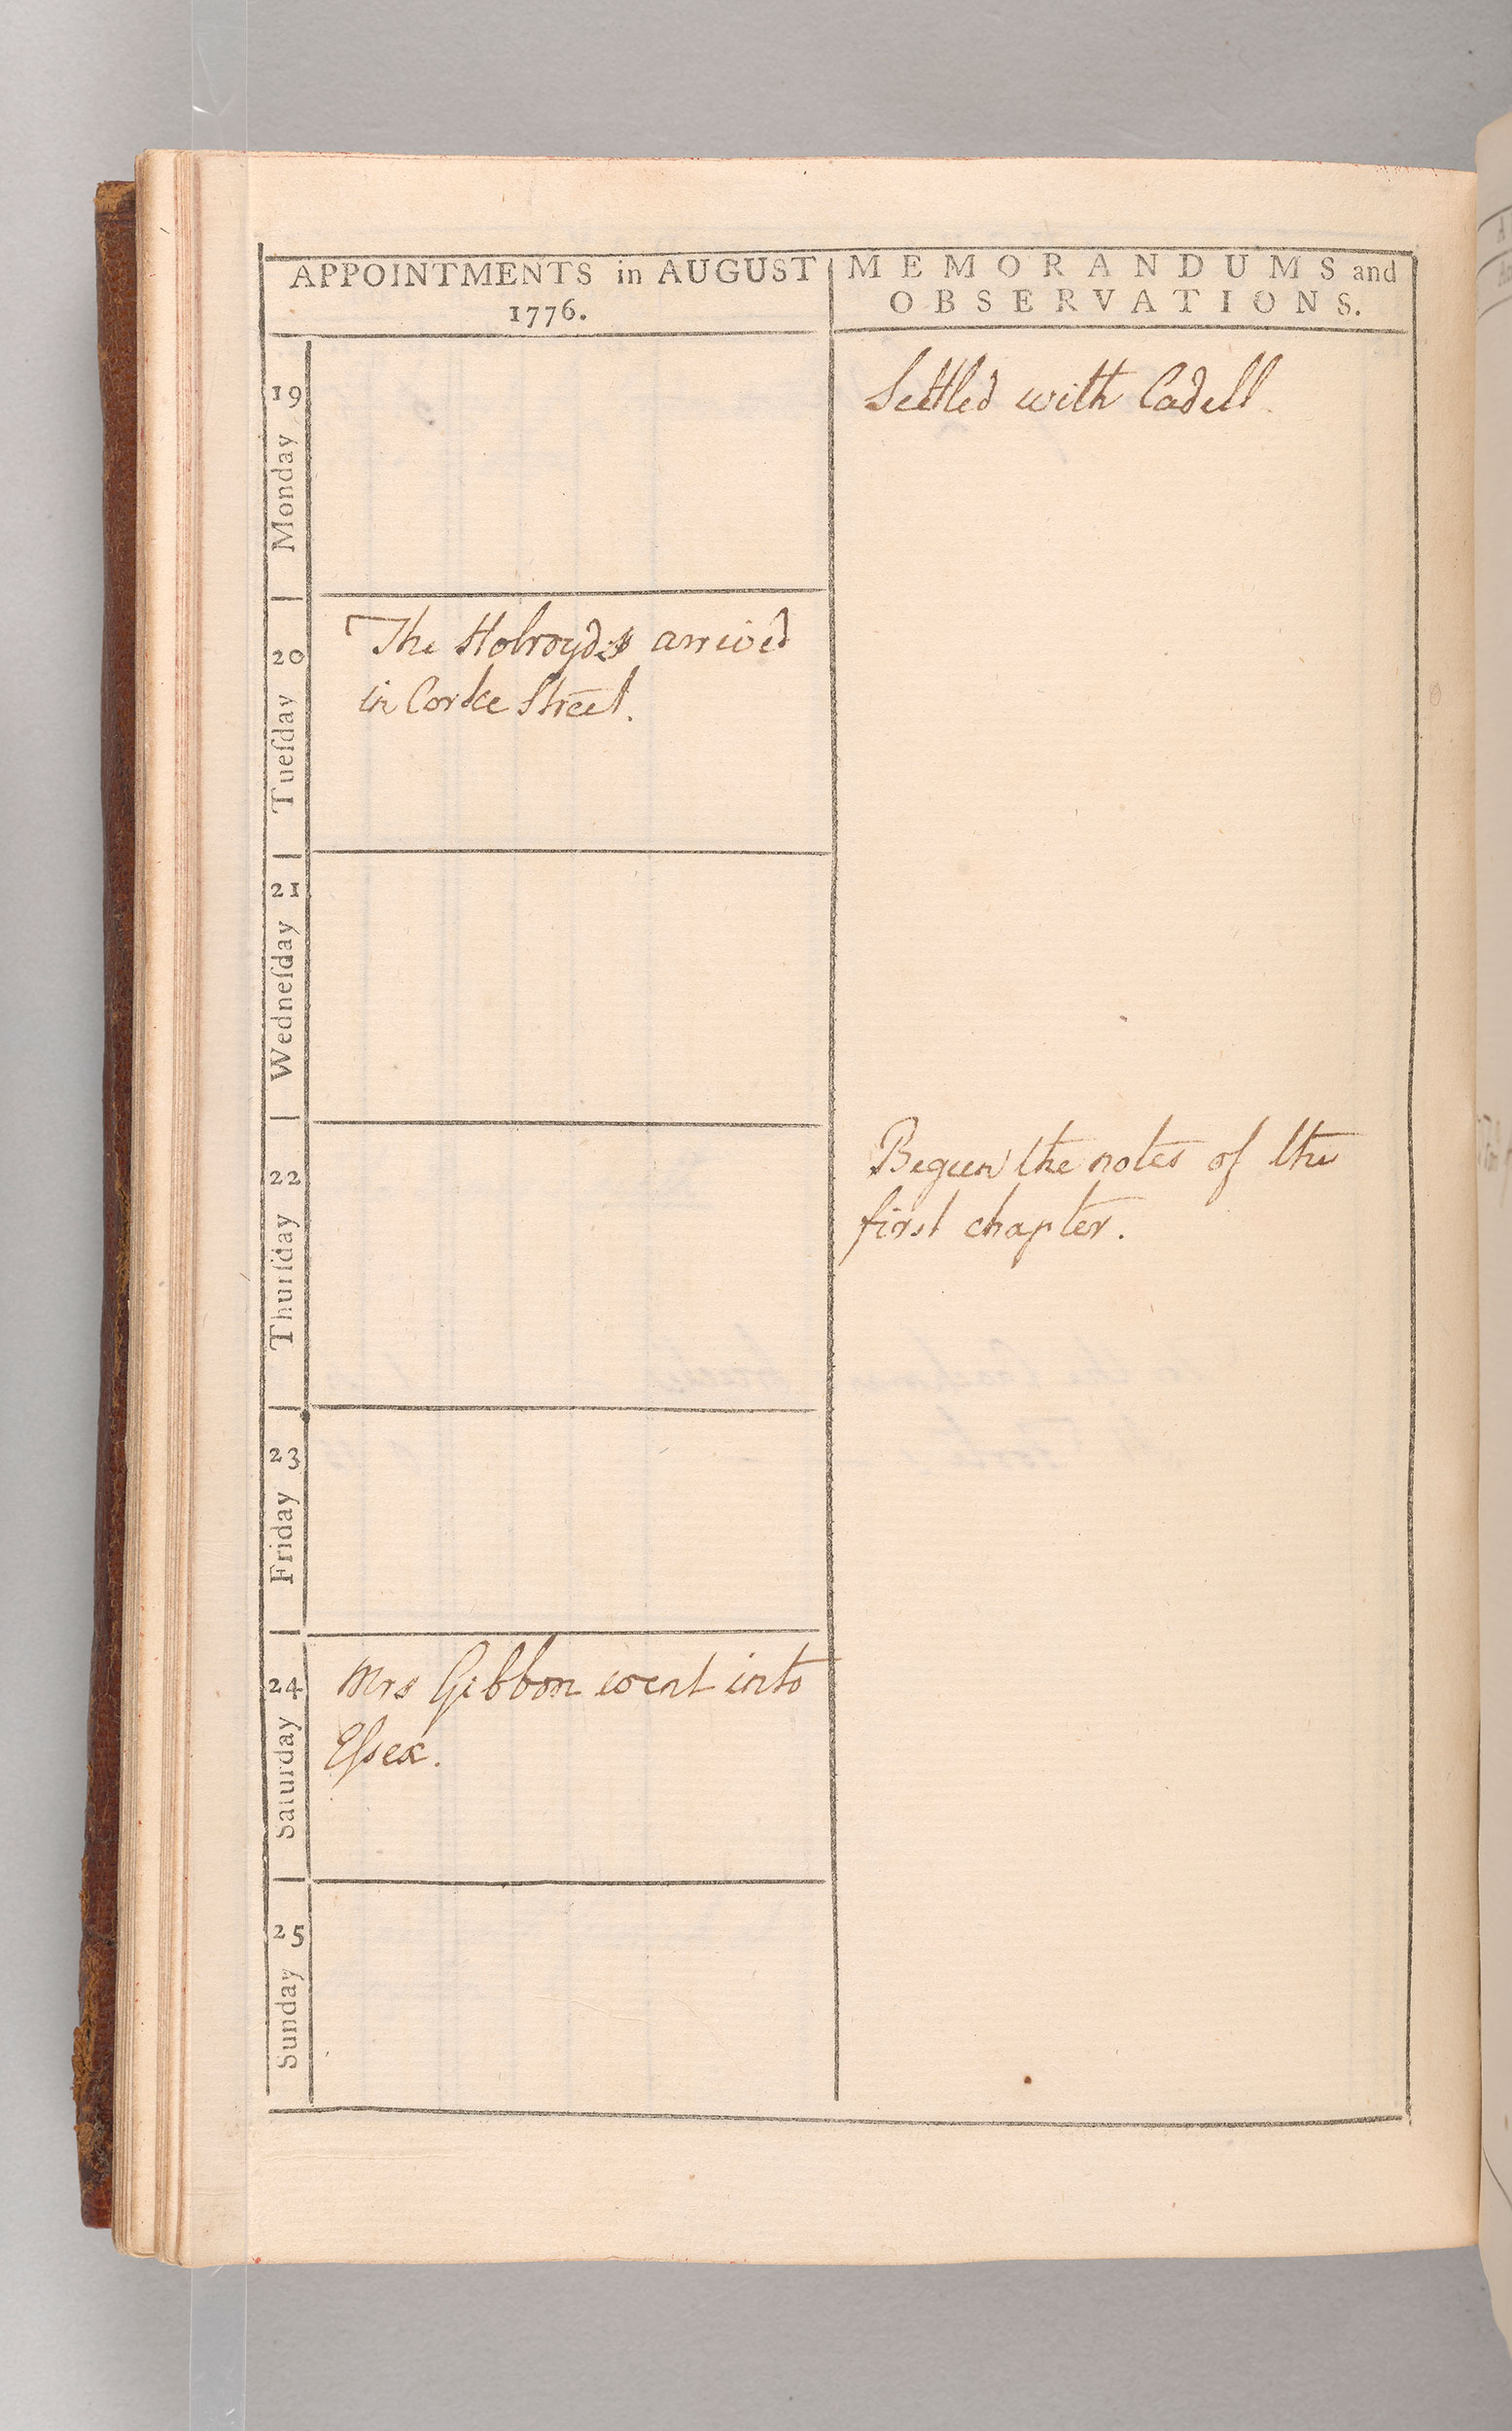 APPOINTMENTS in AUGUST
1776.
MEMORANDUMS and
OBSERVATIONS.
19 Monday
Settled with Cadell.
20 Tueſday
The Holroyds arrived
in Corke Street.
21 Wedneſday
22 Thurſday
Begun the notes of the
first chapter.
23 Friday
24 Saturday
Mrs Gibbon went into
Eſsex.
25 Sunday